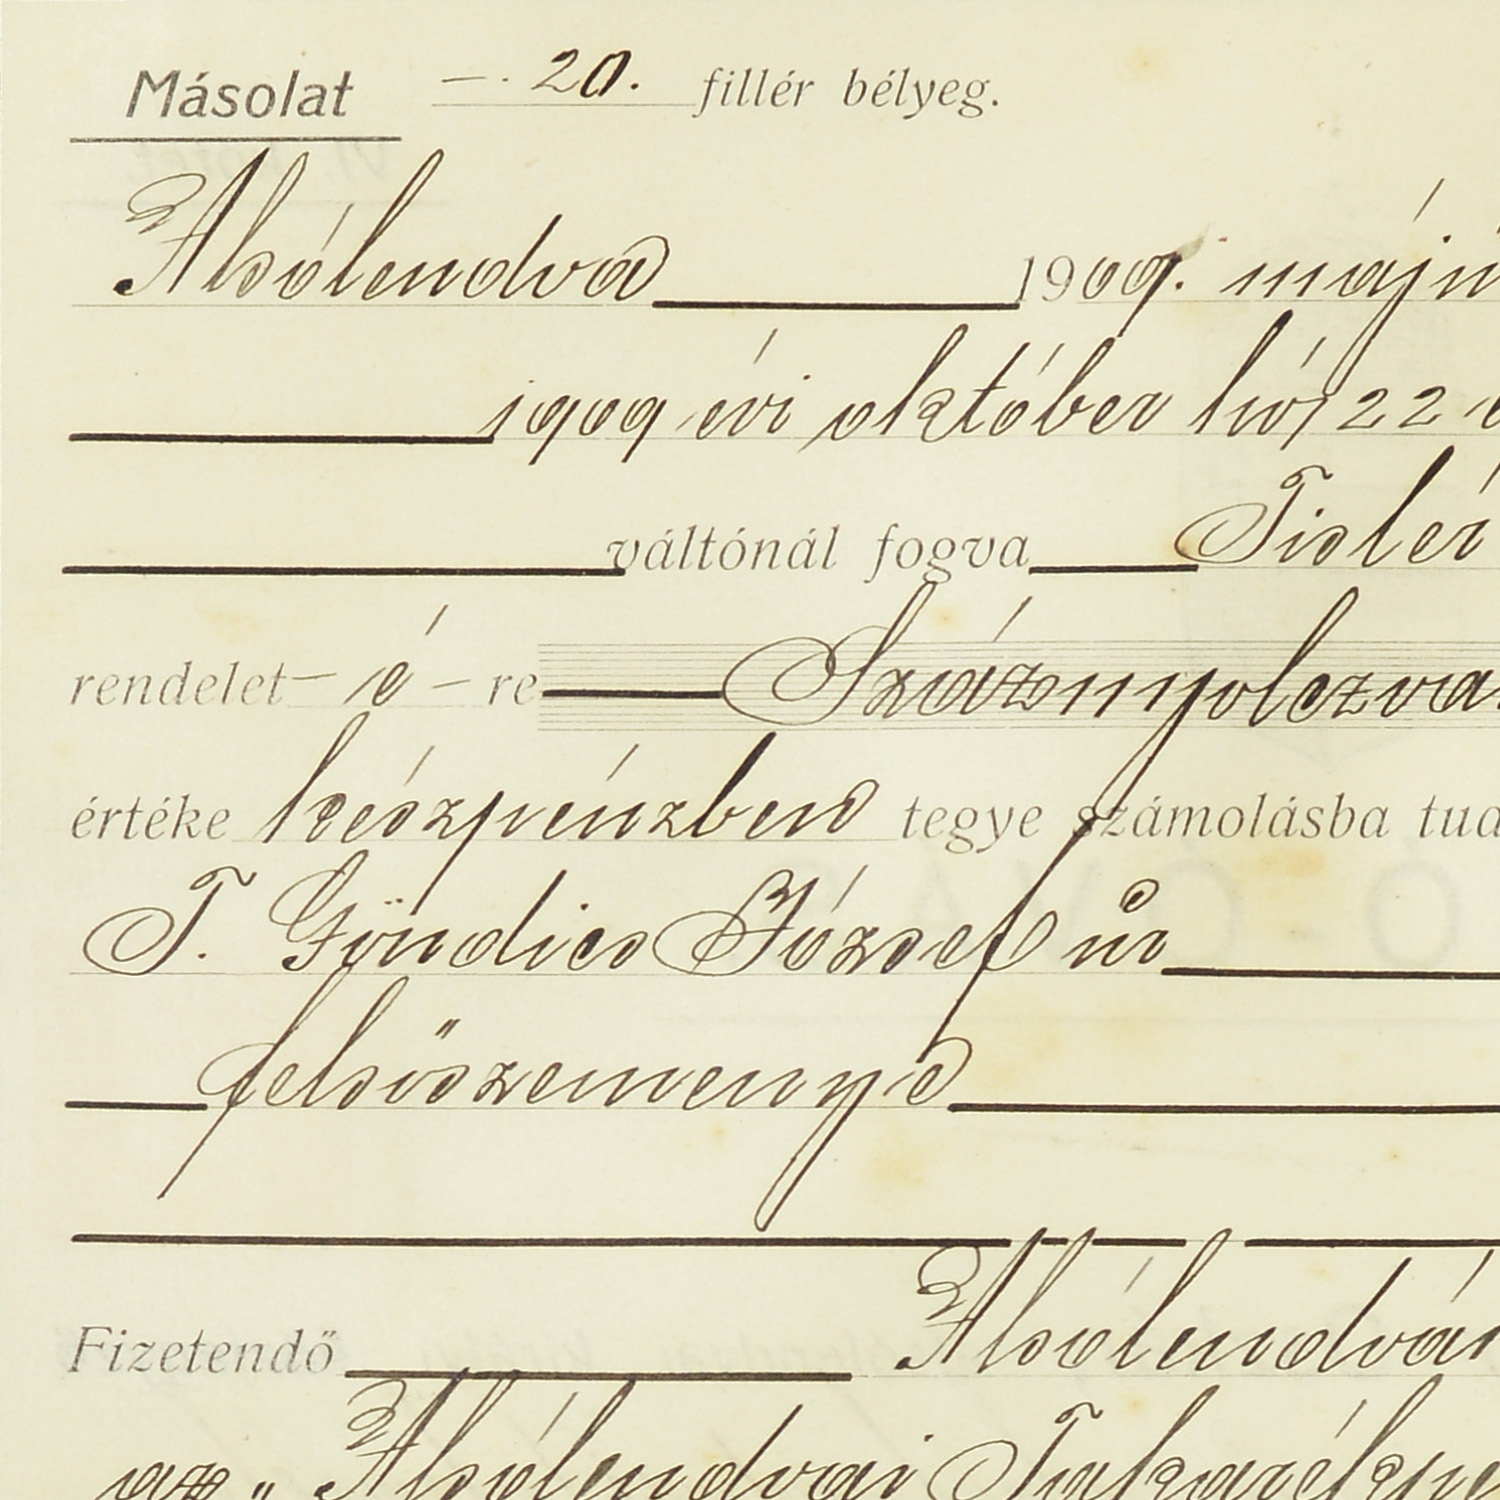 Másolat —. 20. fillér bélyeg.
Alsólendva 1909. májú
1909 évi október hó 22
váltónál fogva Tislér
rendelet – é – re Száznyolczva
értéke készpénzben tegye számolásba tud
T. Göndics József úr
felsőszemenye
Fizetendő Alsólendvá
az „ Alsólendvai Takarékpé